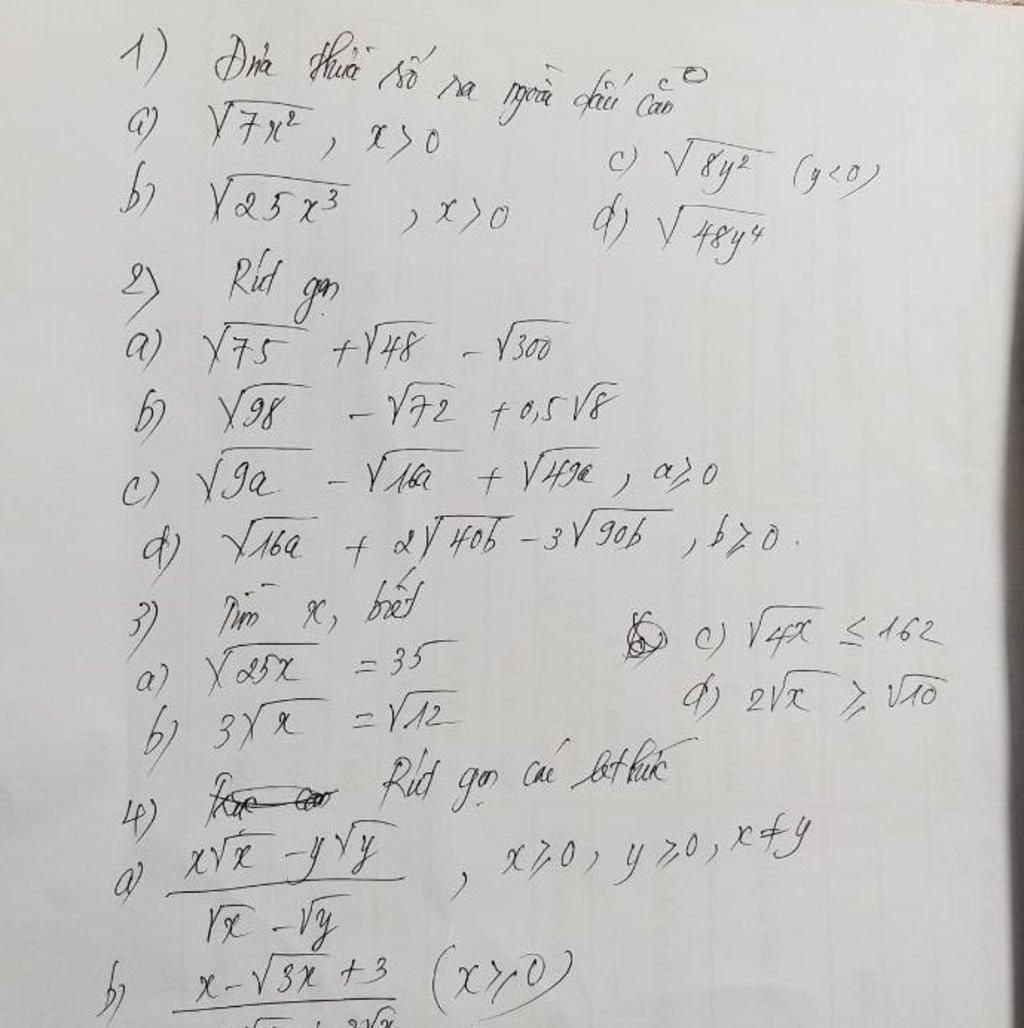 1) Đưa thừa số ra ngoài dấu căn
a) √7x² , x>0
c) √8y² (y<0)
b) √25x³ , x>0
d) √48y⁴
2) Rút gọn
a) √75 + √48 - √300
b) √98 - √72 + 0,5√8
c) √9a - √16a + √49a , a≥0
d) √16a + 2√40b - 3√90b , b≥0.
3) Tìm x, biết
c) √4x ≤ 162
a) √25x = 35
d) 2√x ≥ √10
b) 3√x = √12
4) Rút gọn các bt thức
a) (x√x - y√y)/(√x - √y) , x≥0, y≥0, x≠y
b) x - √3x + 3 (x≥0)